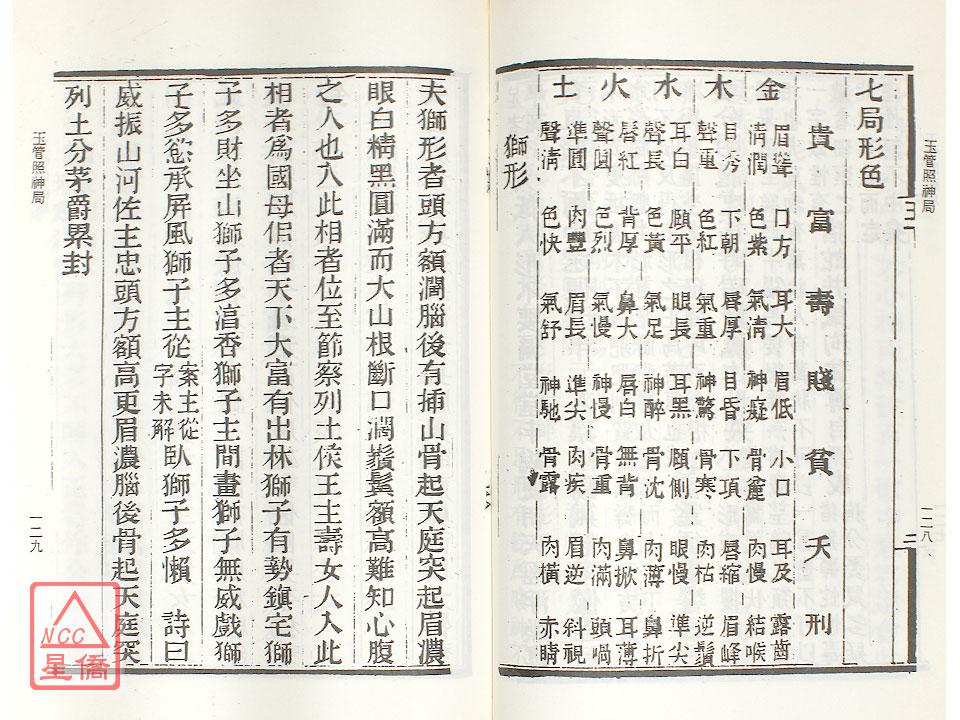 玉管照神局
一二八
七局形色
貴富壽賤貧夭刑
金
眉聳 口方 耳大 眉低 小口 耳及 露齒
清潤 色紫 氣清 神癡 骨麄 肉慢 結喉
木
目秀 下朝 唇厚 目昏 下項 唇縮 眉峰
聲重 色紅 氣重 神驚 骨寒 肉枯 逆鬚
水
耳白 願平 眼長 耳黑 願側 眼慢 準尖
聲長 色黃 氣足 神醉 骨沈 肉薄 鼻折
火
唇紅 背厚 鼻大 唇白 無背 鼻掀 耳薄
聲圓 色烈 氣慢 神慢 骨重 肉滿 頭㗻
土
準圓 肉豐 眉長 準尖 肉疾 眉逆 斜視
聲清 色快 氣舒 神馳 骨露 肉橫 赤睛
獅形
夫獅形者頭方額濶腦後有揷山骨起天庭突起眉濃
眼白精黑圓滿而大山根斷口濶鬚鬢額高難知心腹
之人也入此相者位至節察列土侯王主壽女人入此
相者爲國母佀者天下大富有出林獅子有勢鎭宅獅
子多財坐山獅子多湻香獅子主間畫獅子無威戲獅
子多慾承屏風獅子主從案主從字未解臥獅子多懶 詩曰
威振山河佐主忠頭方額高更眉濃腦後骨起天庭突
列土分茅爵累封
玉管照神局
一二九
NCC
星僑